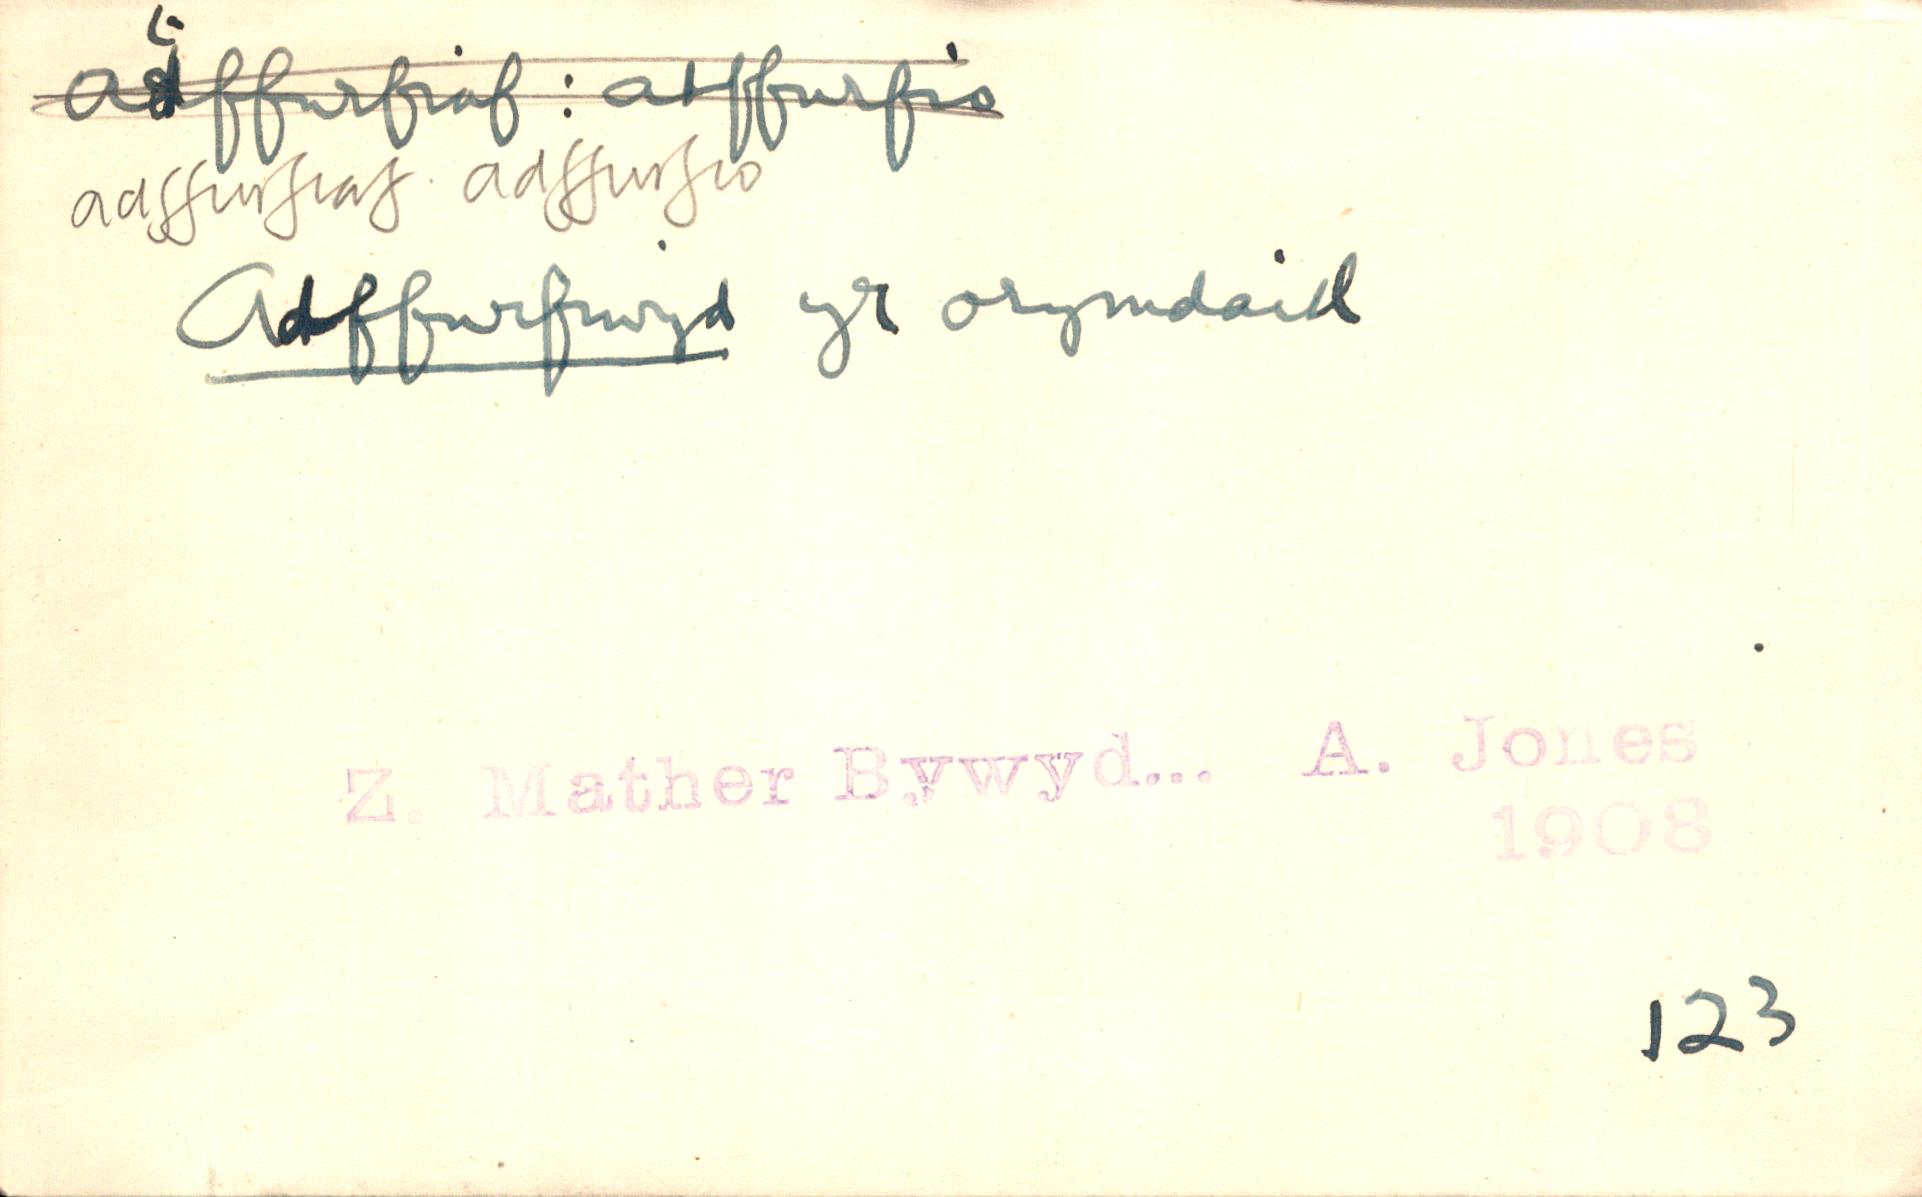 atffurfiaf : atffurfio
adffurfiaf. adffurfio
Adffurfiwyd yr orymdaith
Z. Mather Bywyd... A. Jones
1908
123